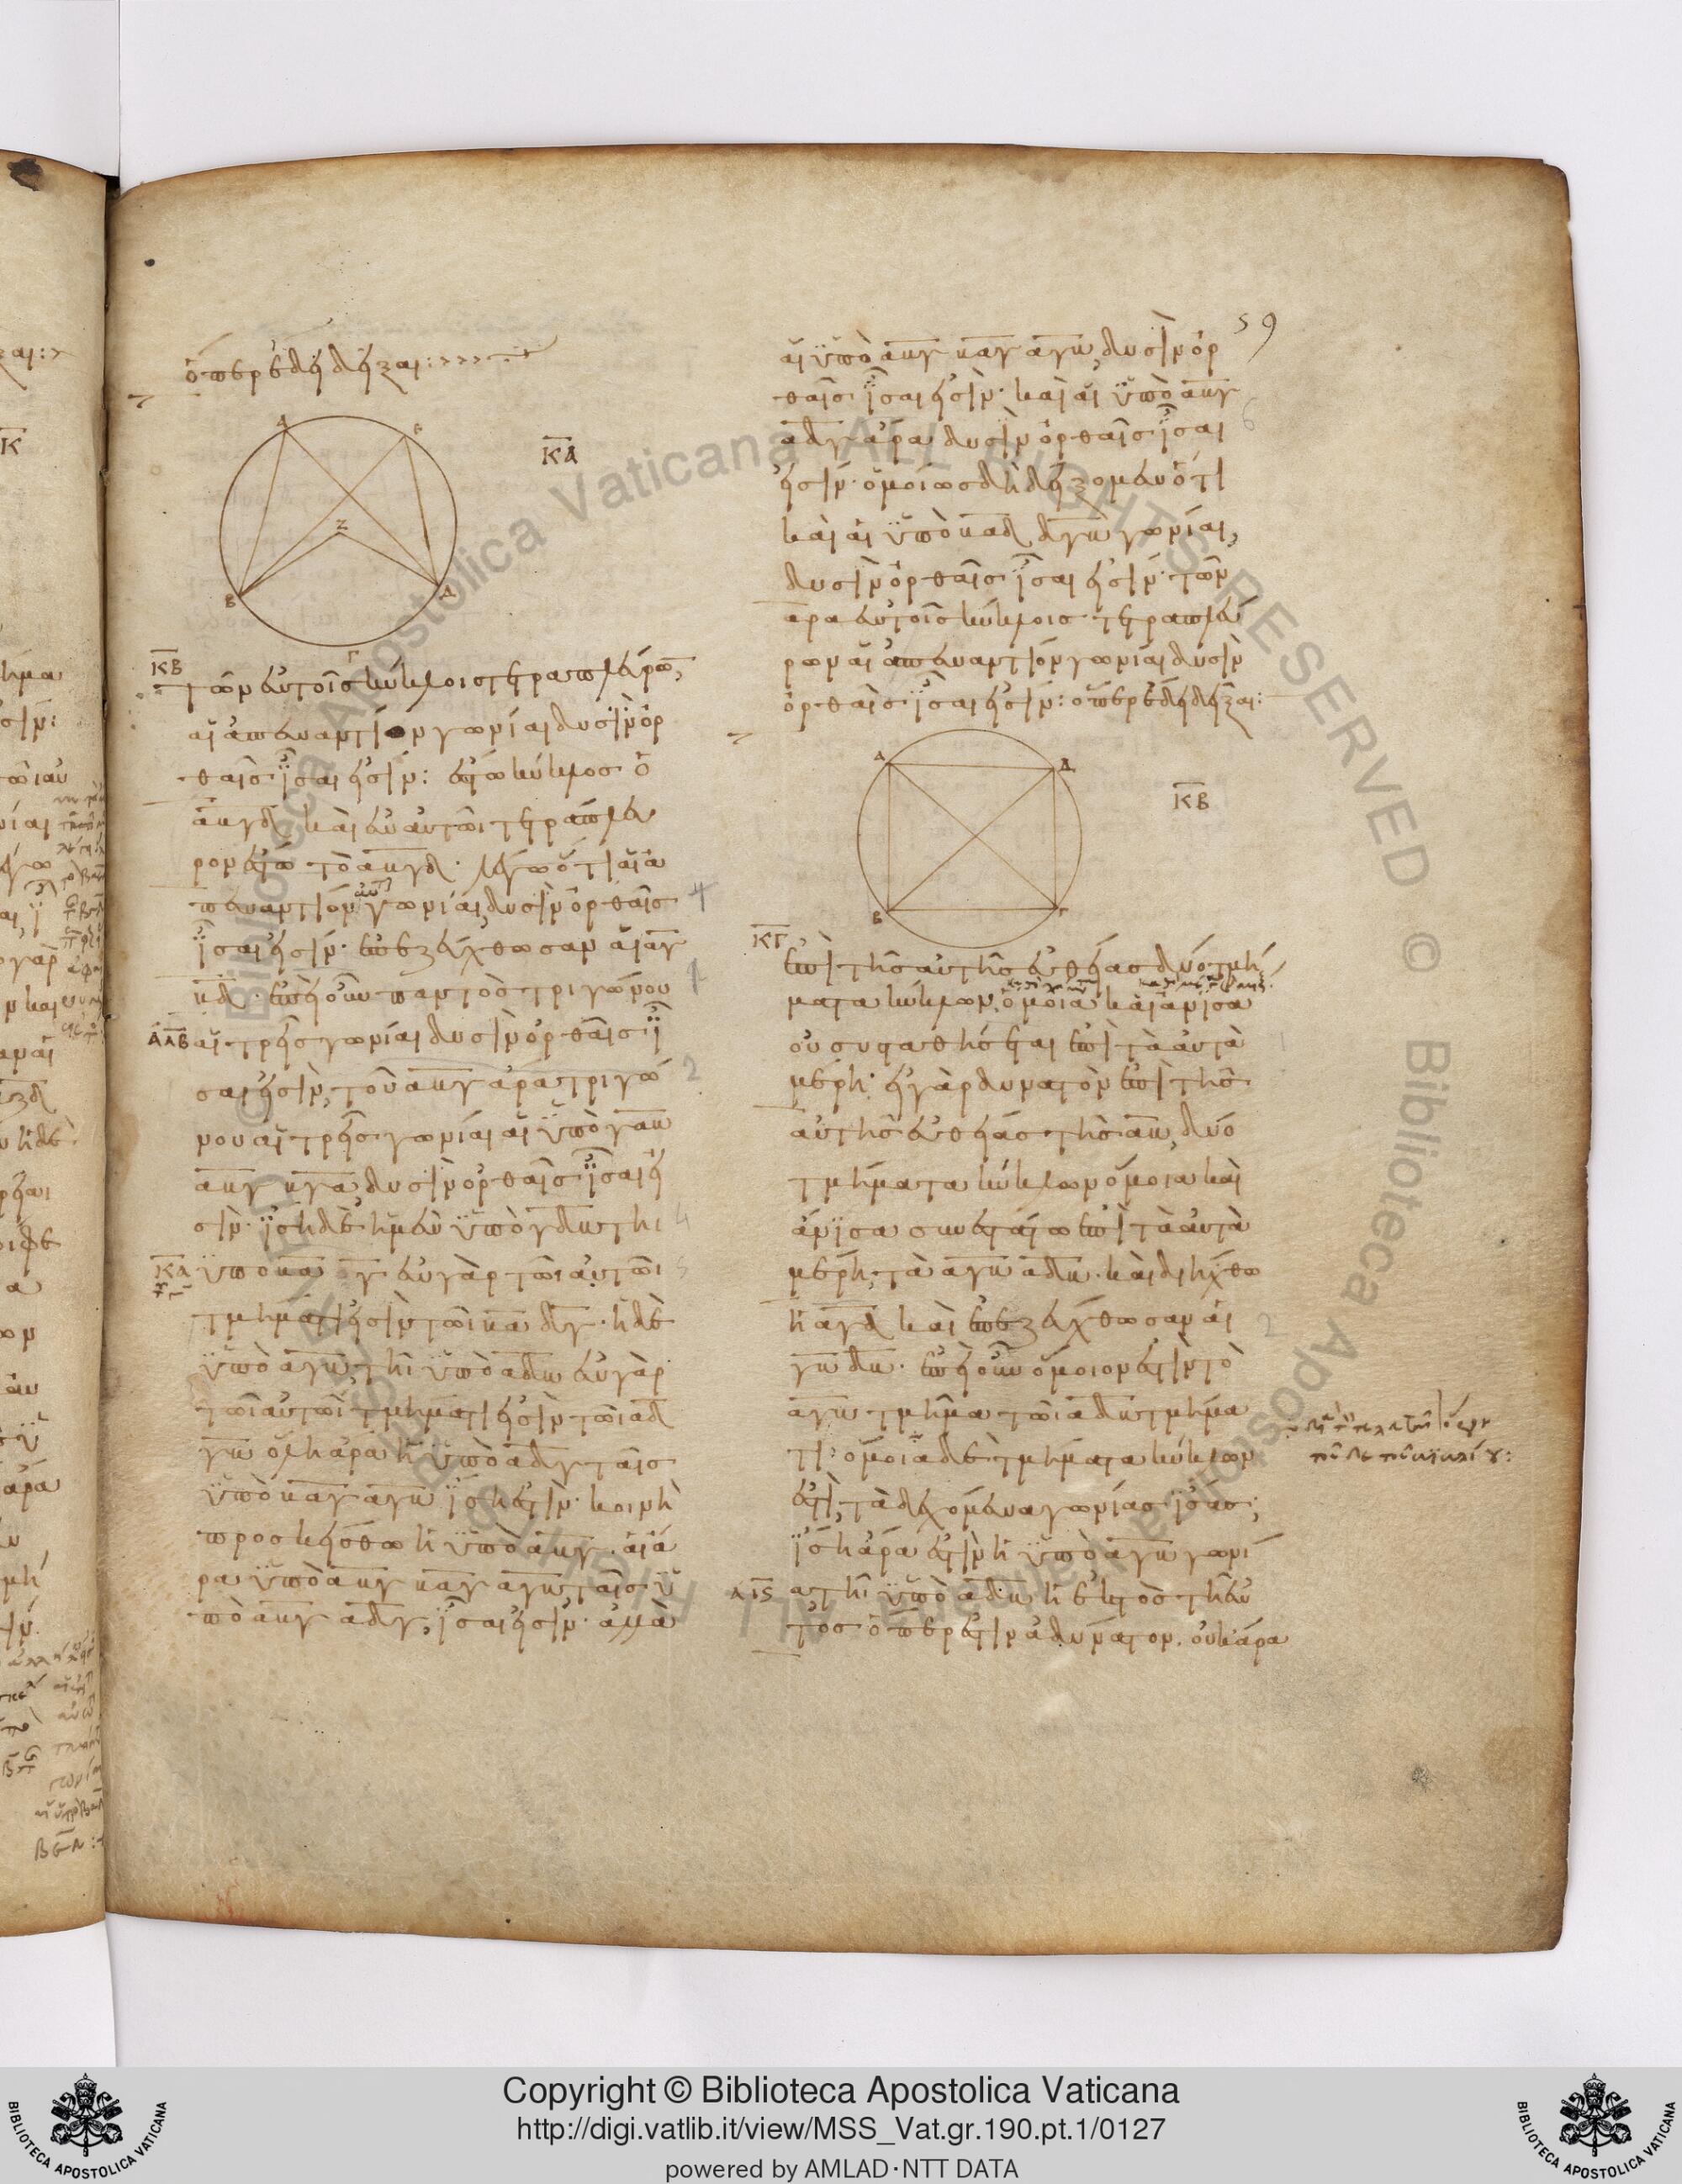 ὅπερ ἔδει δεῖξαι:
ΚΑ
Α
Ε
Ζ
Β
Δ
Γ
ΚΒ
τῶν ἐν τοῖς κύκλοις τετραπλεύρων,
αἱ ἀπεναντίον γωνίαι δυσὶν ὀρ
θαῖς ἴσαι εἰσίν: ἔστω κύκλος ὁ
αβγδ καὶ ἐν αὐτῶι τετράπλευ
ρον ἔστω τὸ αβγδ. λέγω ὅτι αἱ ἀ
πεναντίον γωνίαι, δυσὶν ὀρθαῖς
ἴσαι εἰσίν. ἐπεζεύχθωσαν αἱ αγ
βδ. ἐπεὶ οὖν παντὸς τριγώνου
αἱ τρεῖς γωνίαι δυσὶν ὀρθαῖς ἴ
σαι εἰσὶν, τοῦ αβγ ἄρα τριγώ
νου αἱ τρεῖς γωνίαι αἱ ὑπὸ γαβ
αβγ βγα, δυσὶν ὀρθαῖς ἴσαι εἰ
σὶν. ἴση δὲ ἡ μὲν ὑπὸ γδβ τῆι
ΚΑ
ὑπὸ βαγ ἐν γὰρ τῶι αὐτῶι
τμήματί εἰσὶν τῶι βαδγ. ἡ δὲ
ὑπὸ αγβ, τῆι ὑπὸ αδβ ἐν γὰρ
τῶι αὐτῶι τμήματί εἰσὶν τῶι αδ
γβ ὅλη ἄρα ἡ ὑπὸ αδγ ταῖς
ὑπὸ βαγ αγβ ἴση ἐστὶν. κοινὴ
προσκείσθω ἡ ὑπὸ αβγ. αἱ ἄ
ρα ὑπὸ αβγ βαγ αγβ ταῖς ὑ
πὸ αβγ αδγ, ἴσαι εἰσίν. ἀλλὰ
59
αἱ ὑπὸ αβγ βαγ αγβ, δυσὶν ὀρ
θαῖς ἴσαι εἰσίν. καὶ αἱ ὑπὸ αβγ
αδγ ἄρα δυσὶν ὀρθαῖς ἴσαι
εἰσίν. ὁμοίως δὴ δείξομεν ὅτι
καὶ αἱ ὑπὸ βαδ δγβ γωνίαι,
δυσὶν ὀρθαῖς ἴσαι εἰσίν. τῶν
ἄρα ἐν τοῖς κύκλοις τετραπλεύ
ρων αἱ ἀπεναντίον γωνίαι δυσὶν
ὀρθαῖς ἴσαι εἰσίν: ὅπερ ἔδει δεῖξαι:
ΚΒ
Α
Δ
Β
Γ
ΚΓ
ἐπὶ τῆς αὐτῆς εὐθείας δύο τμή
ματα κύκλων, ὅμοια καὶ ἄνισα
οὐ συσταθήσεται ἐπὶ τὰ αὐτὰ
μέρη. εἰ γὰρ δυνατὸν ἐπὶ τῆς
αὐτῆς εὐθείας τῆς αβ, δύο
τμήματα κύκλων ὅμοια καὶ
ἄνισα συνεστάτω ἐπὶ τὰ αὐτὰ
μέρη, τὰ αγβ αδβ. καὶ διήχθω
ἡ αγδ καὶ ἐπεζεύχθωσαν αἱ
γβ δβ. ἐπεὶ οὖν ὅμοιον ἐστὶν τὸ
αγβ τμῆμα τῶι αδβ τμήμα
τι. ὅμοια δὲ τμήματα κύκλων
ἐστὶ, τὰ δεχόμενα γωνίας ἴσας,
ἴση ἄρα ἐστὶν ἡ ὑπὸ αγβ γωνί
α τῆι ὑπὸ αδβ ἡ ἐκτὸς τῆι ἐν
τός ὅπερ ἐστὶν ἀδύνατον. οὐκ ἄρα
Copyright © Biblioteca Apostolica Vaticana
http://digi.vatlib.it/view/MSS_Vat.gr.190.pt.1/0127
powered by AMLAD·NTT DATA